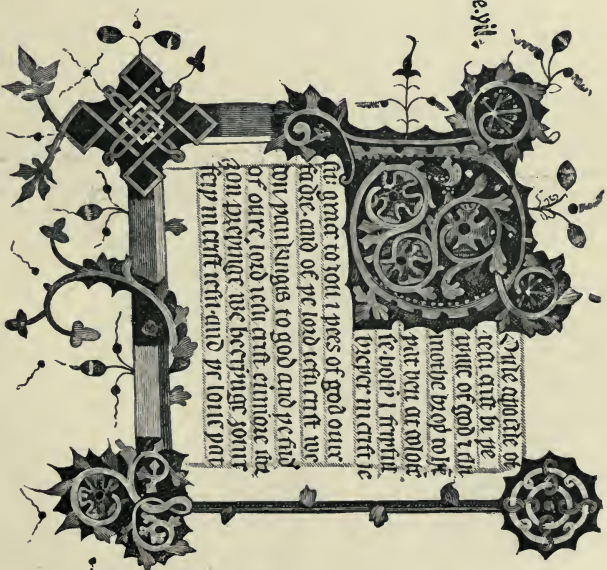 e.vii.
Oule apostle of
crist bi þe
of god ⁊ thi
mothe broþ to hē
þat ben at coloſ
ſe hooly ⁊ feyþful
in criſt ie
ſu: grace to ȝou ⁊ pees of god oure
fadir, and of þe lord ieſu criſt we
don þankingis to god and þe fadir
of oure lord ieſu criſt euermore for
ȝou preyinge we herynge ȝour
feyþ in criſt ieſu and þe loue þat